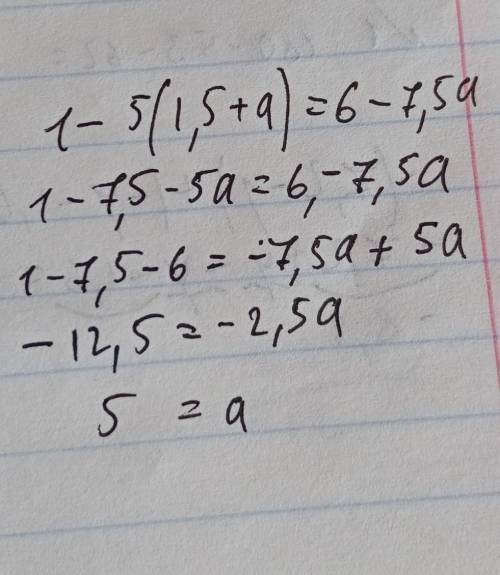 1 - 5(1,5 + a) = 6 - 7,5a
1 - 7,5 - 5a = 6, - 7,5a
1 - 7,5 - 6 = -7,5a + 5a
- 12,5 = - 2,5a
5 = a